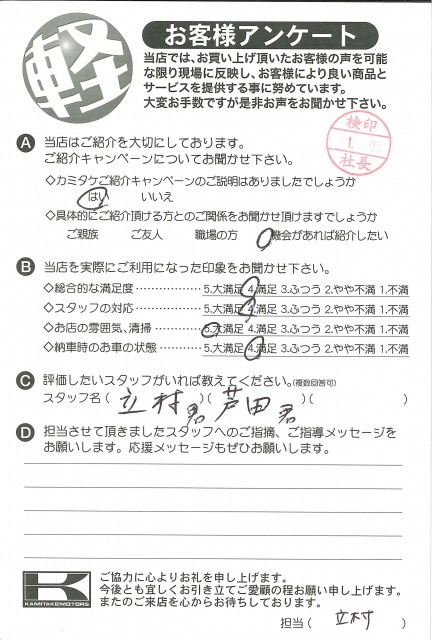 軽
お客様アンケート
当店では、お買い上げ頂いたお客様の声を可能
な限り現場に反映し、お客様により良い商品と
サービスを提供する事に努めています。
大変お手数ですが是非お声をお聞かせ下さい。
検印
1.
社長
A 当店はご紹介を大切にしております。
ご紹介キャンペーンについてお聞かせ下さい。
◇カミタケご紹介キャンペーンのご説明はありましたでしょうか
はい いいえ
◇具体的にご紹介頂ける方とのご関係をお聞かせ頂けますでしょうか
ご親族 ご友人 職場の方 機会があれば紹介したい
B 当店を実際にご利用になった印象をお聞かせ下さい。
◇総合的な満足度 ················ 5.大満足 4.満足 3.ふつう 2.やや不満 1.不満
◇スタッフの対応 ················ 5.大満足 4.満足 3.ふつう 2.やや不満 1.不満
◇お店の雰囲気、清掃 ············ 5.大満足 4.満足 3.ふつう 2.やや不満 1.不満
◇納車時のお車の状態 ············ 5.大満足 4.満足 3.ふつう 2.やや不満 1.不満
C 評価したいスタッフがいれば教えてください。(複数回答可)
スタッフ名 ( 立村君 )( 芦田君 )( )
D 担当させて頂きましたスタッフへのご指摘、ご指導メッセージを
お願いします。応援メッセージもぜひお願いします。
KAMITAKEMOTORS
ご協力に心よりお礼を申し上げます。
今後とも宜しくお引き立てご愛顧の程お願い申し上げます。
またのご来店を心からお待ちしております。
担当 ( 立村 )